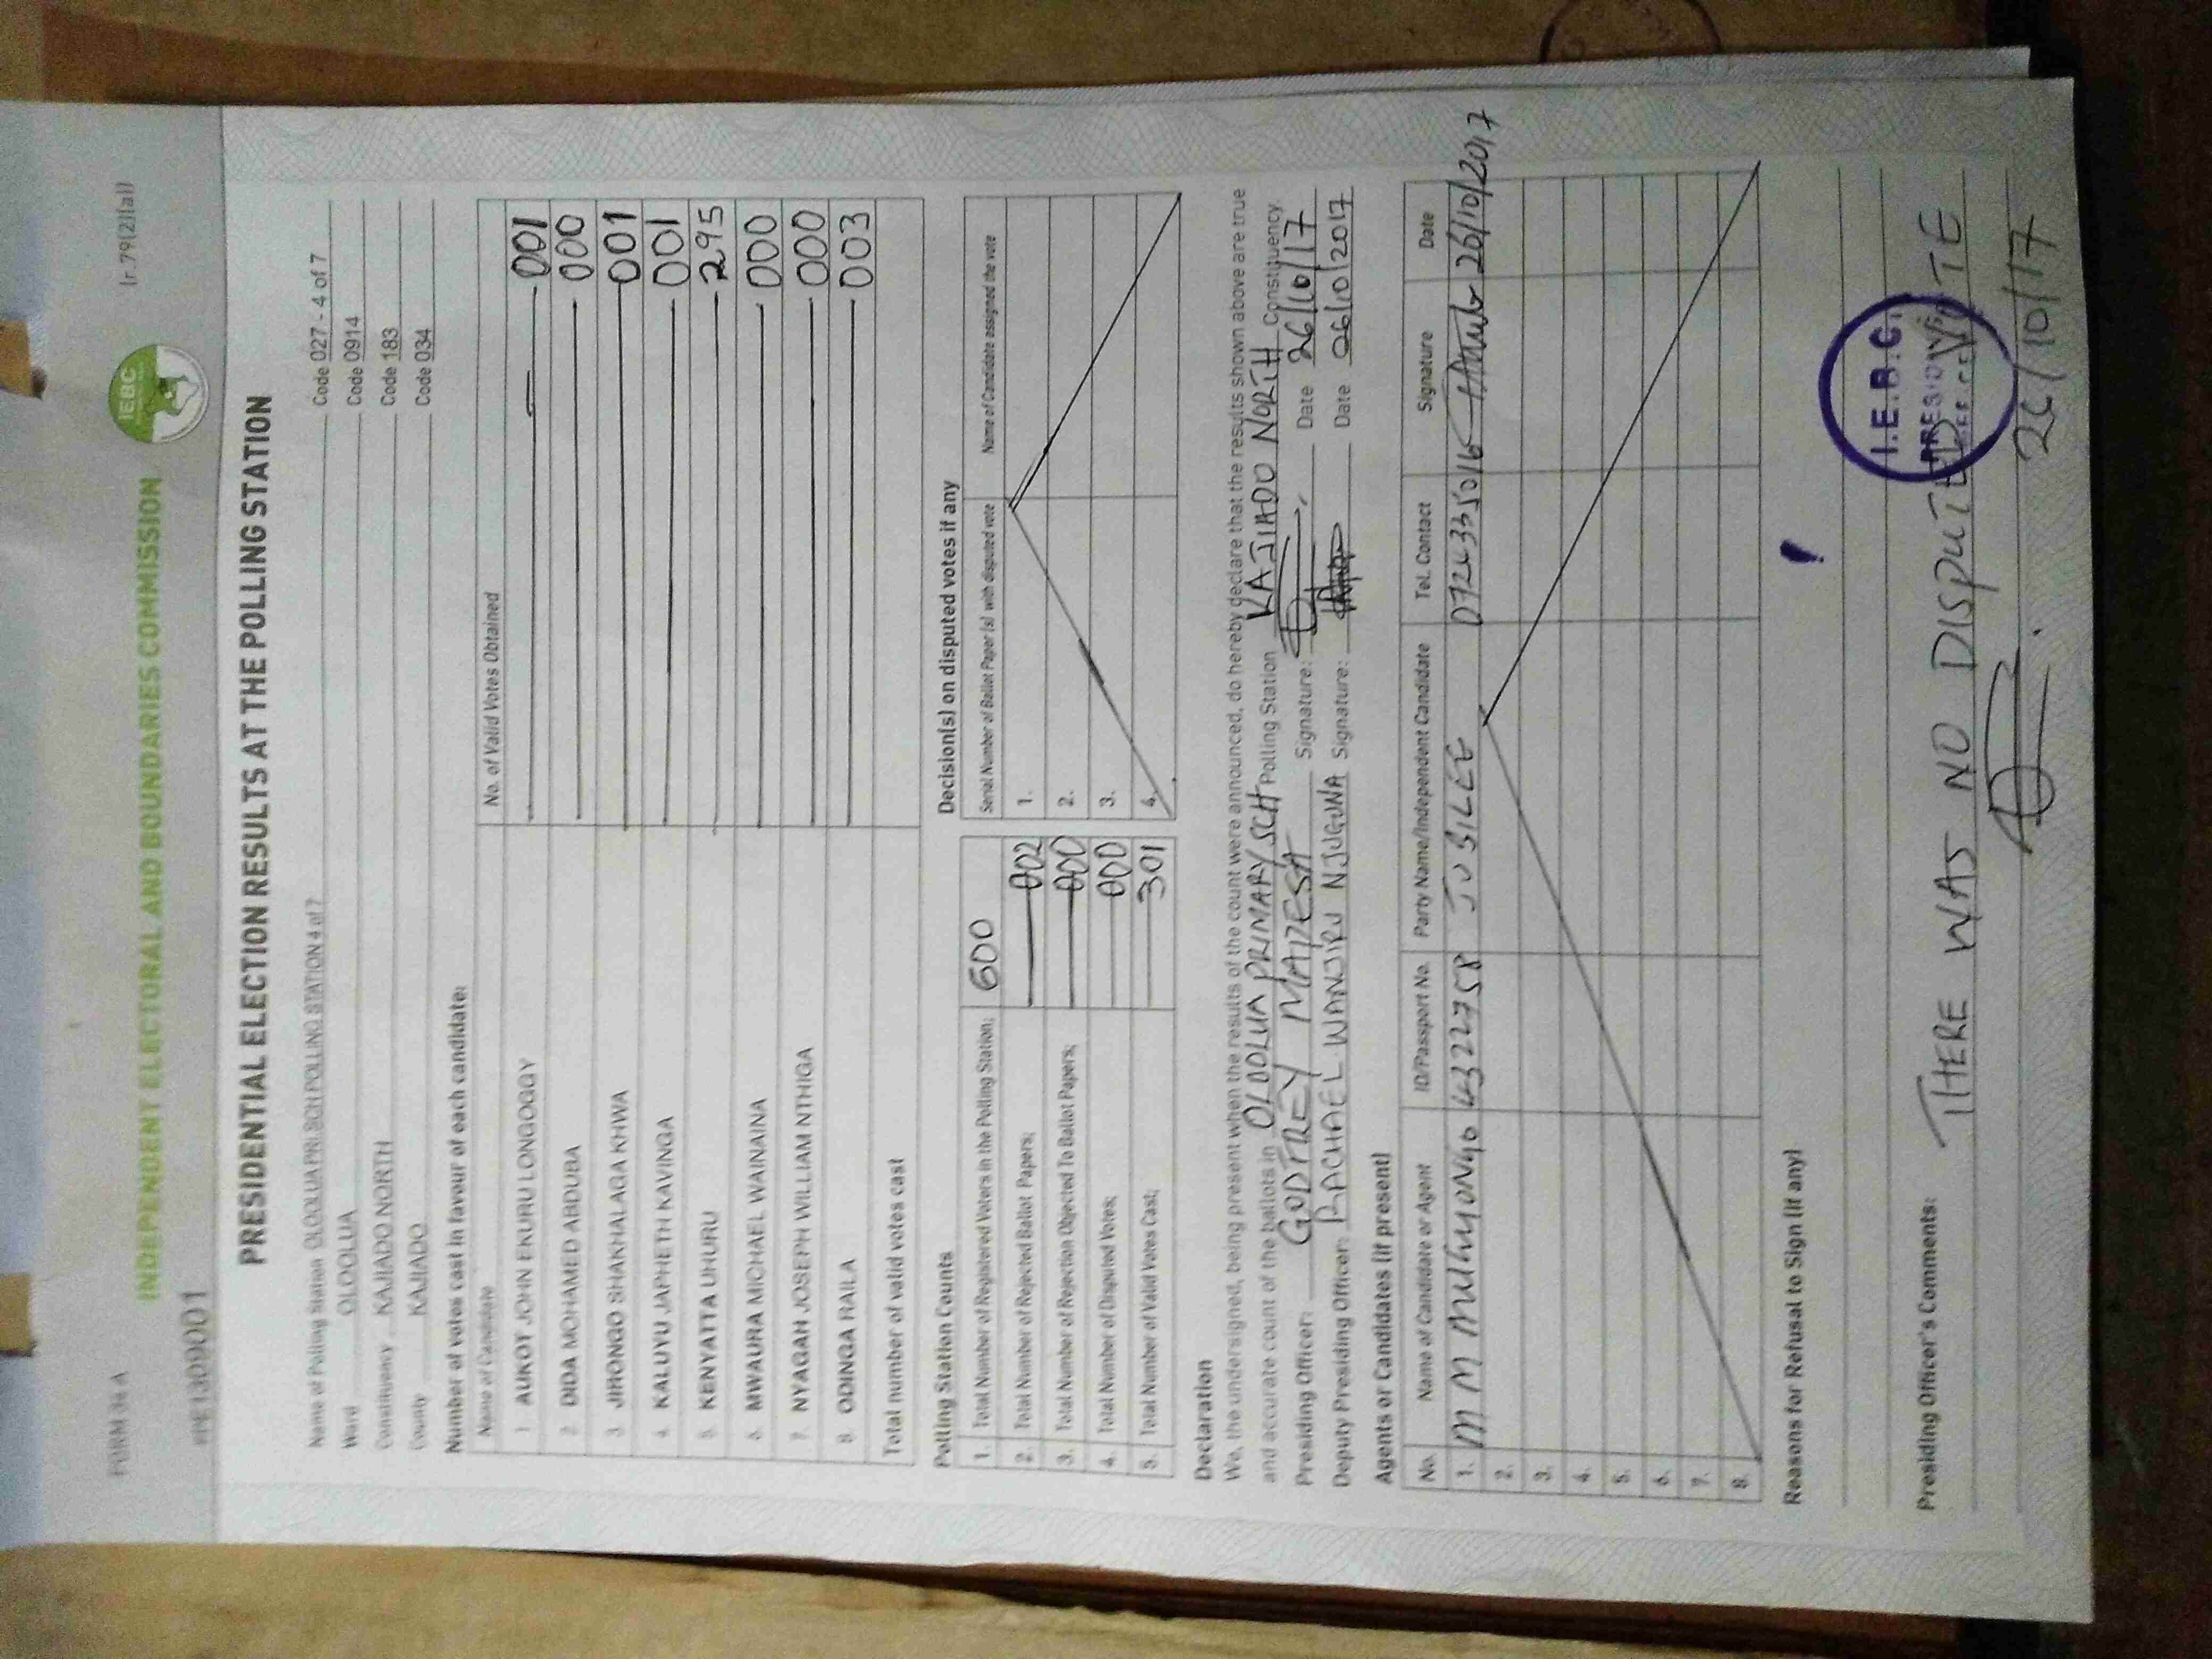 FORM 34 A
(r.79(2)(a))
INDEPENDENT ELECTORAL AND BOUNDARIES COMMISSION
IEBC
PRESIDENTIAL ELECTION RESULTS AT THE POLLING STATION
Name of Polling Station OLOOLUA PRI SCH POLLING STATION 4 of 7 Code 027 - 4 of 7
Ward OLOOLUA Code 0914
Constituency KAJIADO NORTH Code 183
County KAJIADO Code 034
Number of votes cast in favour of each candidate:
Name of Candidate No. of Valid Votes Obtained
1 AUKOT JOHN EKURU LONGOGGY 001
2 DIDA MOHAMED ABDUBA 000
3 JIRONGO SHAKHALAGA KHWA 001
4. KALUYU JAPHETH KAVINGA 001
5. KENYATTA UHURU 295
6. MWAURA MICHAEL WAINAINA 000
7. NYAGAH JOSEPH WILLIAM NTHIGA 000
8. ODINGA RAILA 003
Total number of valid votes cast
Polling Station Counts
1. Total Number of Registered Voters in the Polling Station; 600
2. Total Number of Rejected Ballot Papers; 002
3. Total Number of Rejection Objected To Ballot Papers; 000
4. Total Number of Disputed Votes; 000
5. Total Number of Valid Votes Cast; 301
Decision(s) on disputed votes if any
Serial Number of Ballot Paper (s) with disputed vote Name of Candidate assigned the vote
1.
2.
3.
4.
Declaration
We, the undersigned, being present when the results of the count were announced, do hereby declare that the results shown above are true
and accurate count of the ballots in OLOOLUA PRIMARY SCH Polling Station KAJIADO NORTH Constituency
Presiding Officer: GODFREY MAIDESA Signature: Date 26/10/17
Deputy Presiding Officer: RACHAEL WANJIRU NJUGUNA Signature: Date 26/10/2017
Agents or Candidates (if present)
No. Name of Candidate or Agent ID/Passport No. Party Name/Independent Candidate Tel. Contact Signature Date
1. M M Muhyongo 4322758 JUBILEE 0724335016 26/10/2017
2.
3.
4.
5.
6.
7.
8.
Reasons for Refusal to Sign (if any)
I.E.B.C.
Presiding Officer's Comments: THERE WAS NO DISPUTED VOTE
26/10/17